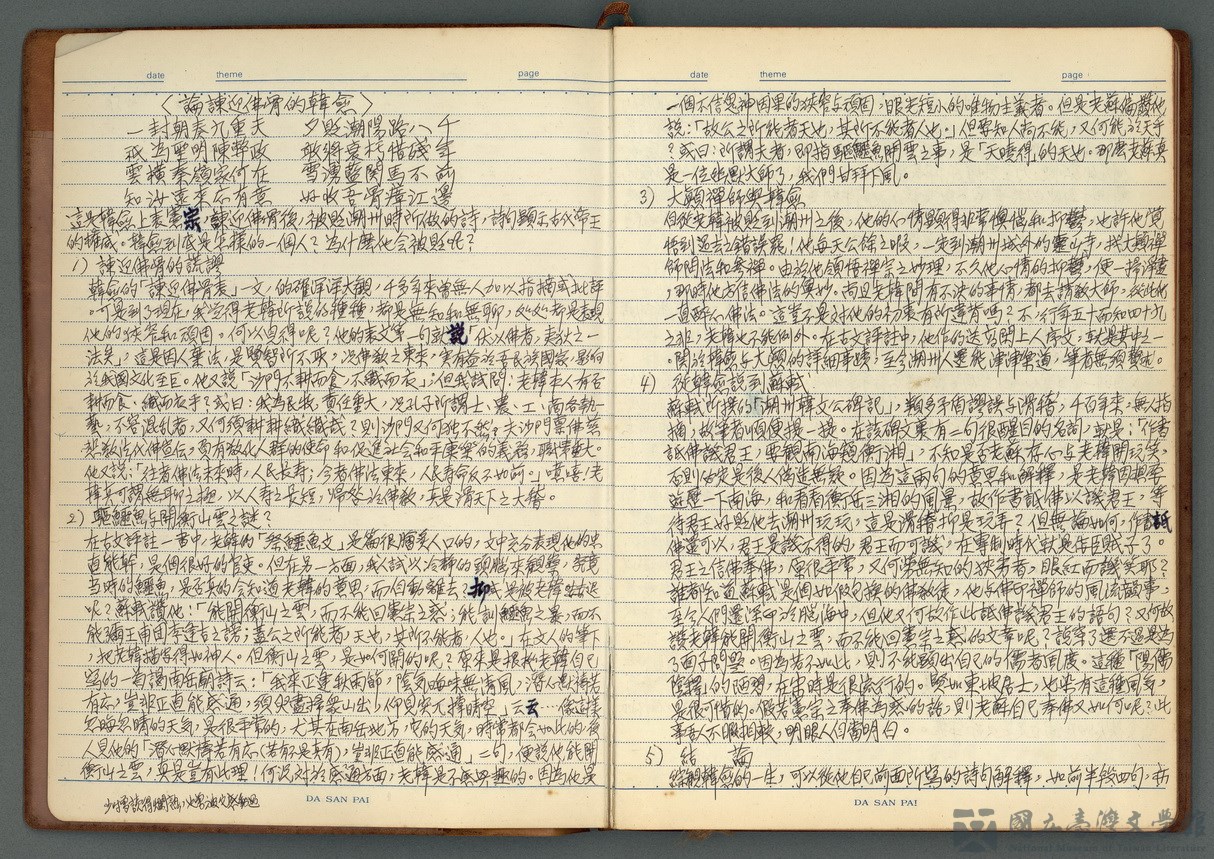 date theme page
〈論諫迎佛骨的韓愈〉
一封朝奏九重天 夕貶潮陽路八千
雲橫秦嶺家何在 雪湧藍關馬不前
知汝遠來應有意 好收吾骨瘴江邊
這是韓愈上表憲宗諫迎佛骨後，被貶潮州時所做的詩，詩句顯示古代帝王
的權威。韓愈到底是怎樣的一個人？為什麼他會被貶呢？
1) 諫迎佛骨的荒謬
韓愈的「諫迎佛骨表」一文，的確洋洋大觀，千多年來曾無人加以指摘或批評
。可是到了現在，我覺得老韓所說的種種，都是無知和無聊，
他的狹窄和頑固。何以見得呢？他的表文第一句就說「伏以佛者，夷狄之一
法矣」
於我國文化至巨。他又說「沙門不耕而食，不織而衣」；但我試問：老韓夫人有否
耕而食、織而衣乎？或曰：我為民牧，責任重大，況孔子所謂士、農、工、商各執一
藝，不容混亂者，又何須耕耕織織哉？則沙門又何獨不然？夫沙門稟佛慈
悲救世代佛宣化，負有教化人群的使命和促進社會和平康樂的義務，職業重大。
他又說：「往者佛法未來時，人民長壽；今者佛法東來，人民壽命反不如前。」嘻嘻！老
韓真可謂無聊之極，以人壽之長短，歸咎於佛教，真是滑天下之大稽。
2) 驅鱷魚与開衡山雲之謎？
在古文評註一書中，老韓的「祭鱷魚文」是篇很膾炙人口的，文中充分表現他的忠
直能幹，是個很好的官吏。但在另一方面，我試以冷靜的頭腦來觀察，究竟
當時的鱷魚，是否真的会知道老韓的意思，而自動離去？抑或是被老韓咕走
呢？蘇軾讚他：「能開衡山之雲，而不能回憲宗之惑；能馴鱷魚之暴，而不
能彌王甫回李逢吉之謗；蓋公之所能者，天也，其所不能者，人也。」在文人的筆下
，把老韓描寫得如神人。但衡山之雲，是如何開的呢？原來是根据老韓自己
寫的一首謁南岳廟詩云：「我來正逢秋雨節，陰氣晦昧無清風，潛心默禱若
有應，豈非正直能感通，須臾盡掃眾山出，仰見突兀撐晴空」云云…像這樣
忽晦忽晴的天氣，是很平常的，尤其在南岳地方，它的天氣，時常都会如此的，後
人見他的「潛心默禱若有應(若亦是真有)，豈非正直能感通」二句，便說他能開
衡山之雲，真是豈有此理！何況对於感通方面，老韓是不感興趣的。因為他是
DA SAN PAI
date theme page
一個不信鬼神因果的狹窄与頑固，眼光短小的唯物主義者。但是老蘇偏讚他
說：「故公之所能者天也，其所不能者人也。」但要知人尚不能，又何能於天乎
？或曰：所謂天者，即指驅鱷魚開雲之事，是「天曉得」的天也。那麼老韓真
是一位幽默大師了，我們甘拜下風。
3) 大顛禪師與韓愈
自從老韓被貶到潮州之後，他的心情顯得非常懊惱和抑鬱，也許他覺
悟到過去之錯誤罷！他每天公餘之暇，一定到潮州城外的靈山寺，找大顛禪
師問法和參禪。由於他領悟禪宗之妙理，不久他心情的抑鬱，便一掃淨盡
，那時他方信佛法的奧妙。而且老韓聞有不決的事情，都去請教大師，從此他
一直醉心佛法。這豈不是对他的初衷有所違背嗎？不，行年五十而知四十九
之非，老韓也不能例外。在古文評註中，他作的送高閑上人序文，就是其中之一
。關於韓愈与大顛的詳細事蹟，至今潮州人還能津津樂道，筆者無須贅述。
4) 從韓愈說到蘇軾
蘇軾所撰的「潮州韓文公碑記」，頗多矛盾謬誤与滑稽，千百年來，無人指
摘，故筆者順便提一提。在該碑文裏有二句很醒目的名詞，就是：「作書
詆佛譏君王，要觀南海窺衡湘」，不知是否老蘇存心与老韓開玩笑，
否則估定是後人偽造無疑。因為這兩句的意思和解釋，是老韓因想要
遊歷一下南海，和看看衡岳三湘的風景，故作書詆佛以譏君王，等
待君王好貶他去潮州玩玩，這是滑稽抑是玩弄？但無論如何，作書詆
佛還可以，君王是譏不得的，君王而可譏，在專制時代就是岳臣賊子了。
君王之信佛奉佛，原很平常，又何與無知的狹窄者，眼紅而譏笑耶？
誰都知道蘇軾是個如假包換的佛教徒，他与佛印禪師的風流韻事，
至今人們還深印於腦海中，但他又何故作此詆佛譏君王的語句？又何故
讚老韓能開衡山之雲，而不能回憲宗之惑的文章呢？說穿了還不過是為
了面子問題。因為若不如此，則不能顯出自己的儒者風度。這種「陽儒
陰釋」的陋習，在宋時是很流行的。賢如東坡居士，也染有這種風氣，
是很可惜的。假若憲宗之奉佛為惑的話，則老蘇自己奉佛又如何呢？此
事吾人不暇相較，明眼人自當明白。
5) 結 論
綜觀韓愈的一生，可以從他自己前面所寫的詩句解釋，如前半段四句：一封
DA SAN PAI
國立臺灣文學館
National Museum of Taiwan Literature